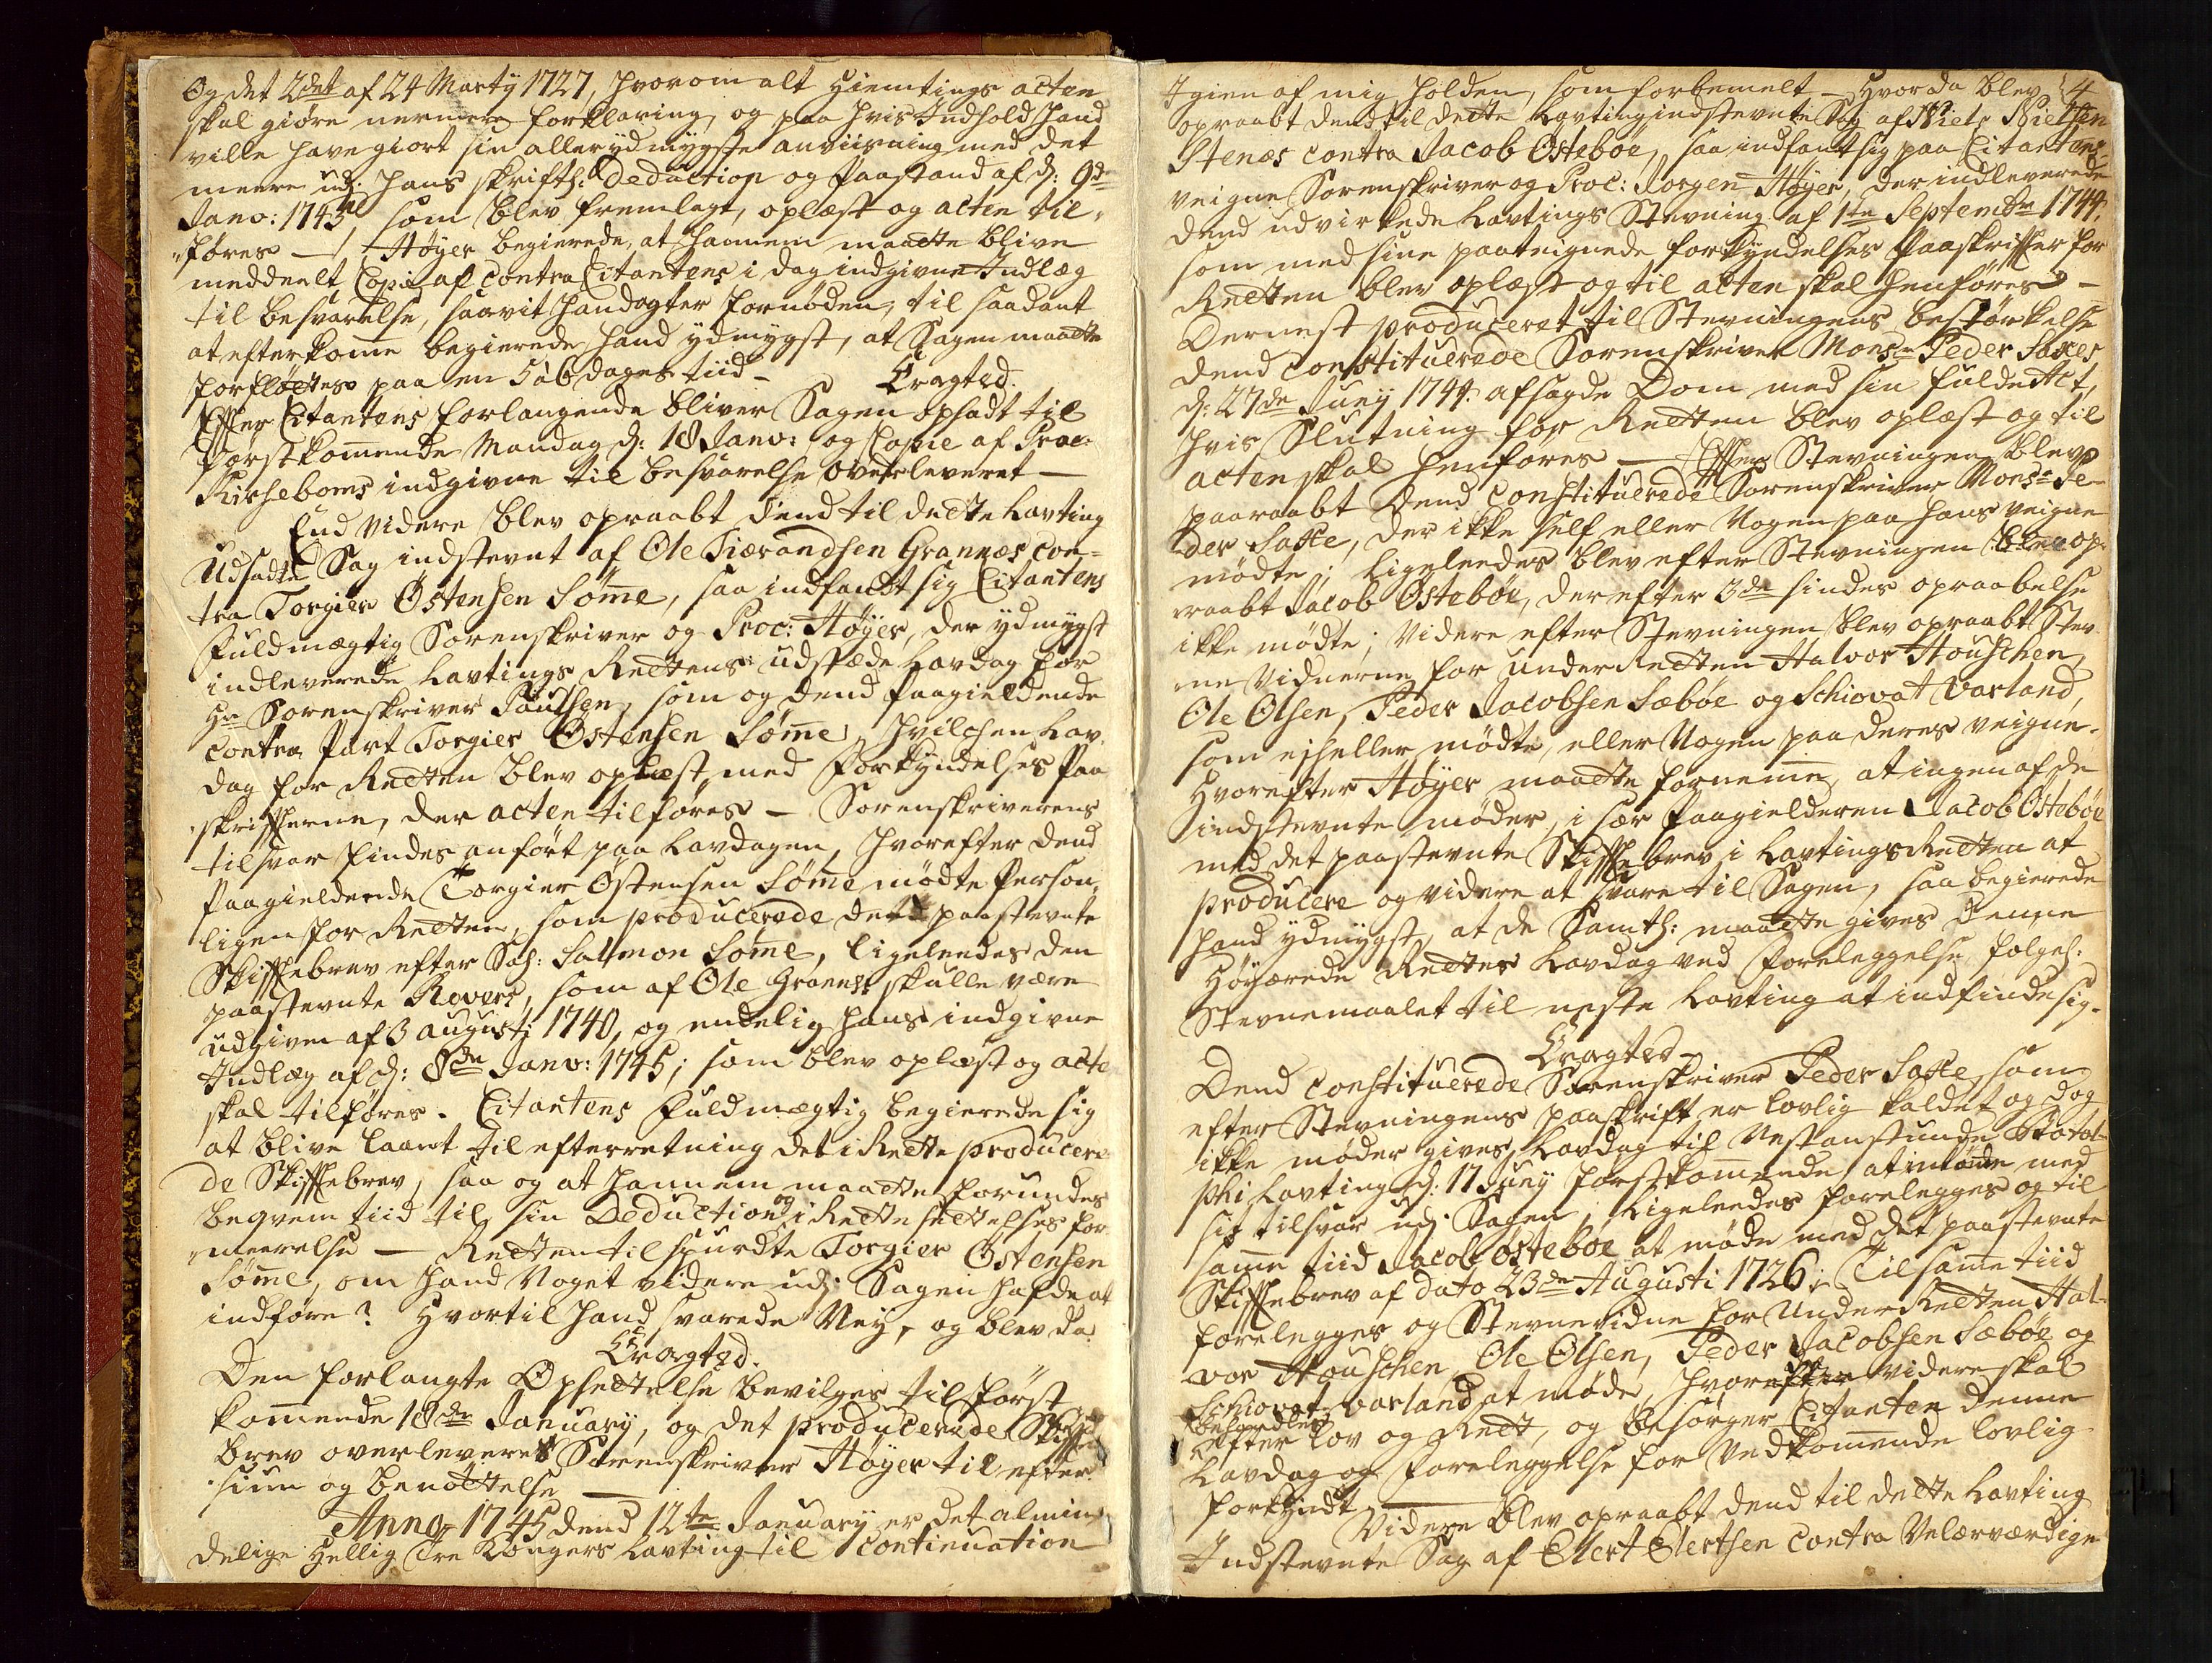 Og det 2det af 24 Marty 1727, hvorom alt Hiemtings acten
skal giøre nermere forklaring, og paa hvis Indhold hand
ville have giort sin allerydmygste anviisning med det
meere udj hans skriftl: Deduction og Paastand af d: 9de
Janv: 1745, som blev fremlagt, oplæst og acten til-
føres — Høyer begierede, at hannem maatte blive
meddeelt Copie af Contra Citantens i dag indgivne Indlæg
til besvarelse, saavit hand agter fornøden, til saadant
at efterkom̅e begierede hand ydmygst, at Sagen maatte
forfløttes paa en 5 à 6 dages tiid —
Eragted.
Efter Citantens forlangende bliver Sagen opsadt til
førstkom̅ende Mandag d: 18 Janv: og Copie af Proc:
Kirseboms indgivne til besvarelse overleveret —
End videre blev opraabt dend til dette Lavting
Udsadte Sag indstevnt af Ole Tiærandsen Grannæs con-
tra Torgier Østensen Søm̅e, saa indfandt sig Citantens
Fuldmægtig Sorenskriver og Proc: Høyer, der ydmygst
indleverede Lavtings Rettens udstæde Lavdag for
Hr Sorenskriver Paulsen, som og dend Paagieldende
Contra Part Torgier Østensen Søm̅e, hvilchen Lav-
dag for Retten blev oplæst med Forkyndelses Paa-
skrifterne, der acten tilføres — Sorenskriverens
tilsvar findes anført paa Lavdagen, hvorefter dend
Paagieldende Torgier Østensen Søm̅e mødte Person-
ligen for Retten, som producerede det paastevnte
Skiftebrev efter Sal: Salmon Søm̅e, ligeleedes den
paastevnte Revers, som af Ole Grannes skulle være
udgiven af 3 augusti 1740, og endelig hans indgivne
Indlæg af d: 8de Janv: 1745; som blev oplæst og acten
skal tilføres. Citantens Fuldmægtig begierede sig
at blive laant til efterretning det i Rette producere-
de Skiftebrev, saa og at hannem maatte forundes
beqvem tiid til sin Deduction og i Rettesettelses for-
meerelse — Retten tilspurdte Torgier Østensen
Søm̅e, om hand noget videre udj Sagen hafde at
indføre? Hvortil hand svarede Ney, og blev da
Eragted.
Den forlangte Opsettelse bevilges til først-
kom̅ende 18de January, og det producerede Skifte-
brev overleveret Sorenskriver Høyer til efter-
siun og benøttelse —
Anno 1745 dend 12te January er det almin-
delige Hellig Tre Kongers Lavting til Continuation
4
Igien af mig holden, som forbemelt — Hvorda blev
opraabt dend til dette Lavting indstevnte Sag af Niels Nielsen
Stenæs contra Jacob Østebøe, saa indfant sig paa Citantens
veigne Sorenskriver og Proc: Jorgen Høyer, der indleverede
dend udvirkede Lavtings Stevning af 1te Septembr 1744.
som med sine paateignede forkyndelses Paaskrifter for
Retten blev oplæst og til acten skal henføres —
Dernest produceret til Stevningens bestørkelse
dend Constituerede Sorenskriver Monsr Peder Saxes
d: 27de Juny 1744 afsagde Dom med sin fulde Act,
hvis Slutning for Retten blev oplæst og til
acten skal henføres — Efter Stevningen blev
paaraabt dend Constituerede Sorenskriver Monsr Pe-
der Saxe, der ikke self eller Nogen paa hans veigne
mødte; Ligeleedes blev efter Stevningen blev op-
raabt Jacob Østebøe, der efter 3de sindes opraabelse
ikke mødte; Videre efter Stevningen blev opraabt Stev-
ne Vidnerne for under Retten Halvor Houschen,
Ole Olsen, Peder Jacobsen Sæbøe og Schiovat Varland,
som ej heller mødte, eller Nogen paa deres veigne.
Hvorefter Høyer maatte fornem̅e, at ingen af de
indstevnte møder, i sær Paagielderen Jacob Østebøe
med det paastevnte Skiftebrev i Lavtings Retten at
producere og videre at svare til Sagen, saa begierede
hand ydmygst, at de Samtl: maatte gives denne
Høyærede Rettes Lavdag ved Foreleggelse følgel:
Stevnemaalet til neste Lavting at indfinde sig.
Eragted
Dend Constituerede Sorenskriver Peder Saxe, som
efter Stevningens paaskrift er lovlig kaldet og dog
ikke møder gives Lavdag til Nestanstunde Botol-
phi Lavting d: 17 Juny førstkom̅ende at møde med
sit tilsvar udj Sagen; Ligeleedes forelegges og til
sam̅e tiid Jacob Østebøe at møde med det paastevnte
Skiftebrev af dato 23de Augusti 1726; Til sam̅e tiid
forelegges og Stevnevidne for Under Retten Hal-
vor Houschen, Ole Olsen, Peder Jacobsen Sæbøe og
Schiovat Varland at møde, hvorefter videre skal
behandles
efter Lov og Rett, og besørger Citanten denne
Lavdag og Foreleggelse for Vedkom̅ende lovlig
forkyndt —
Videre blev opraabt dend til dette Lavting
Indstevnte Sag af Elert Elertsen contra Velærværdige